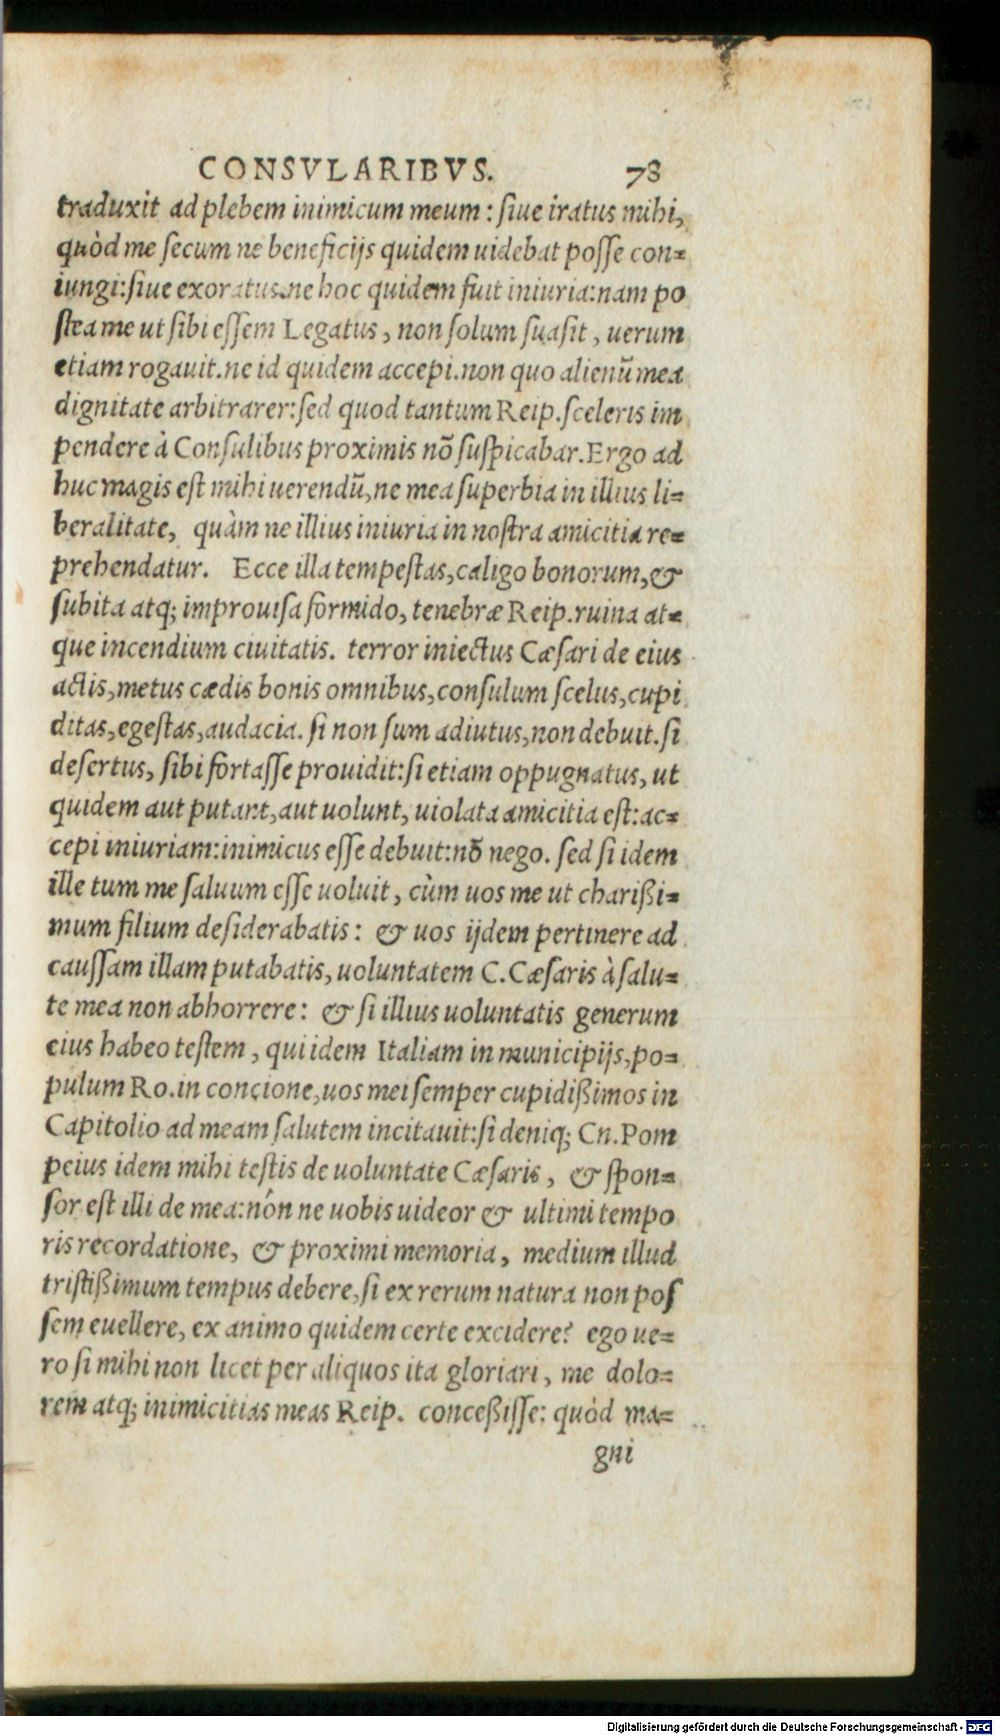 CONSVLARIBVS. 78
traduxit ad plebem inimicum meum: ſiue iratus mihi,
quòd me ſecum ne beneficijs quidem uidebat poſſe con=
iungi: ſiue exoratus. ne hoc quidem fuit iniuria: nam po
ſtea me ut ſibi eſſem Legatus, non ſolum ſuaſit, uerum
etiam rogauit. ne id quidem accepi. non quo alienū mea
dignitate arbitrarer: ſed quod tantum Reip. ſceleris im
pendere à Conſulibus proximis nõ ſuſpicabar. Ergo ad
huc magis eſt mihi uerendū, ne mea ſuperbia in illius li=
beralitate, quàm ne illius iniuria in noſtra amicitia re=
prehendatur. Ecce illa tempeſtas, caligo bonorum, &
ſubita atq; improuiſa formido, tenebræ Reip. ruina at=
que incendium ciuitatis. terror iniectus Cæſari de eius
actis, metus cædis bonis omnibus, conſulum ſcelus, cupi
ditas, egeſtas, audacia. ſi non ſum adiutus, non debuit. ſi
deſertus, ſibi fortaſſe prouidit: ſi etiam oppugnatus, ut
quidem aut putant, aut uolunt, uiolata amicitia eſt: ac=
cepi iniuriam: inimicus eſſe debuit: nõ nego. ſed ſi idem
ille tum me ſaluum eſſe uoluit, cùm uos me ut charißi=
mum filium deſiderabatis: & uos ijdem pertinere ad
cauſſam illam putabatis, uoluntatem C. Cæſaris à ſalu=
te mea non abhorrere: & ſi illius uoluntatis generum
eius habeo teſtem, qui idem Italiam in municipijs, po=
pulum Ro. in concione, uos mei ſemper cupidißimos in
Capitolio ad meam ſalutem incitauit: ſi deniq; Cn. Pom
peius idem mihi teſtis de uoluntate Cæſaris, & ſpon=
ſor eſt illi de mea: nón ne uobis uideor & ultimi tempo
ris recordatione, & proximi memoria, medium illud
triſtißimum tempus debere, ſi ex rerum natura non poſ
ſem euellere, ex animo quidem certe excidere? ego ue=
ro ſi mihi non licet per aliquos ita gloriari, me dolo=
rem atq; inimicitias meas Reip. conceßiſſe: quòd ma=
gni
Digitalisierung gefördert durch die Deutsche Forschungsgemeinschaft - DFG